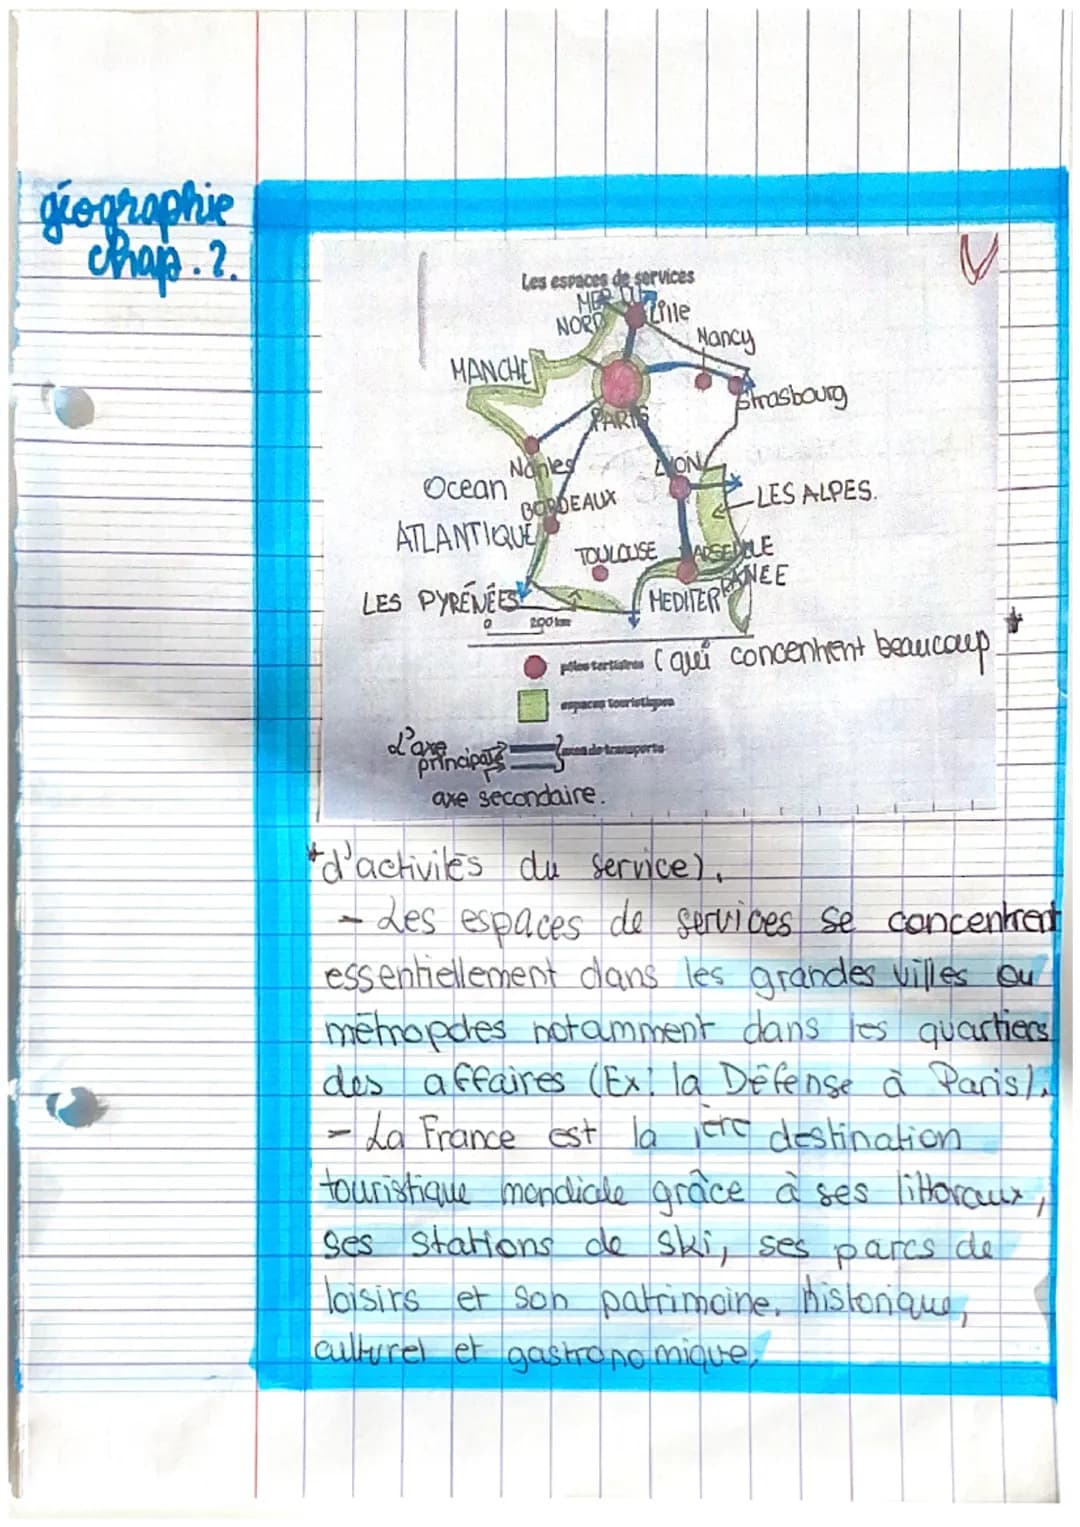 géographie
chap. 2.
Les espaces de services
MER DU
NORD
Lille
Nancy
MANCHE
Strasbourg
PARIS
Nantes
LYON
Ocean
BORDEAUX
LES ALPES.
ATLANTIQUE
TOULOUSE
MARSEILLE
LES PYRÉNÉES
MEDITERRANEE
0 200 km
*
pôles tertiaires (qui concentrent beaucoup
espaces touristiques
L'axe
principale
axes de transports
axe secondaire.
*d'activités du service).
- Les espaces de services se concentrent
essentiellement dans les grandes villes ou
métropoles notamment dans les quartiers
des affaires (Ex: la Défense à Paris).
- La France est la 1ère destination
touristique mondiale grâce à ses littoraux,
ses stations de ski, ses parcs de
loisirs et son patrimoine. historique,
culturel et gastronomique.